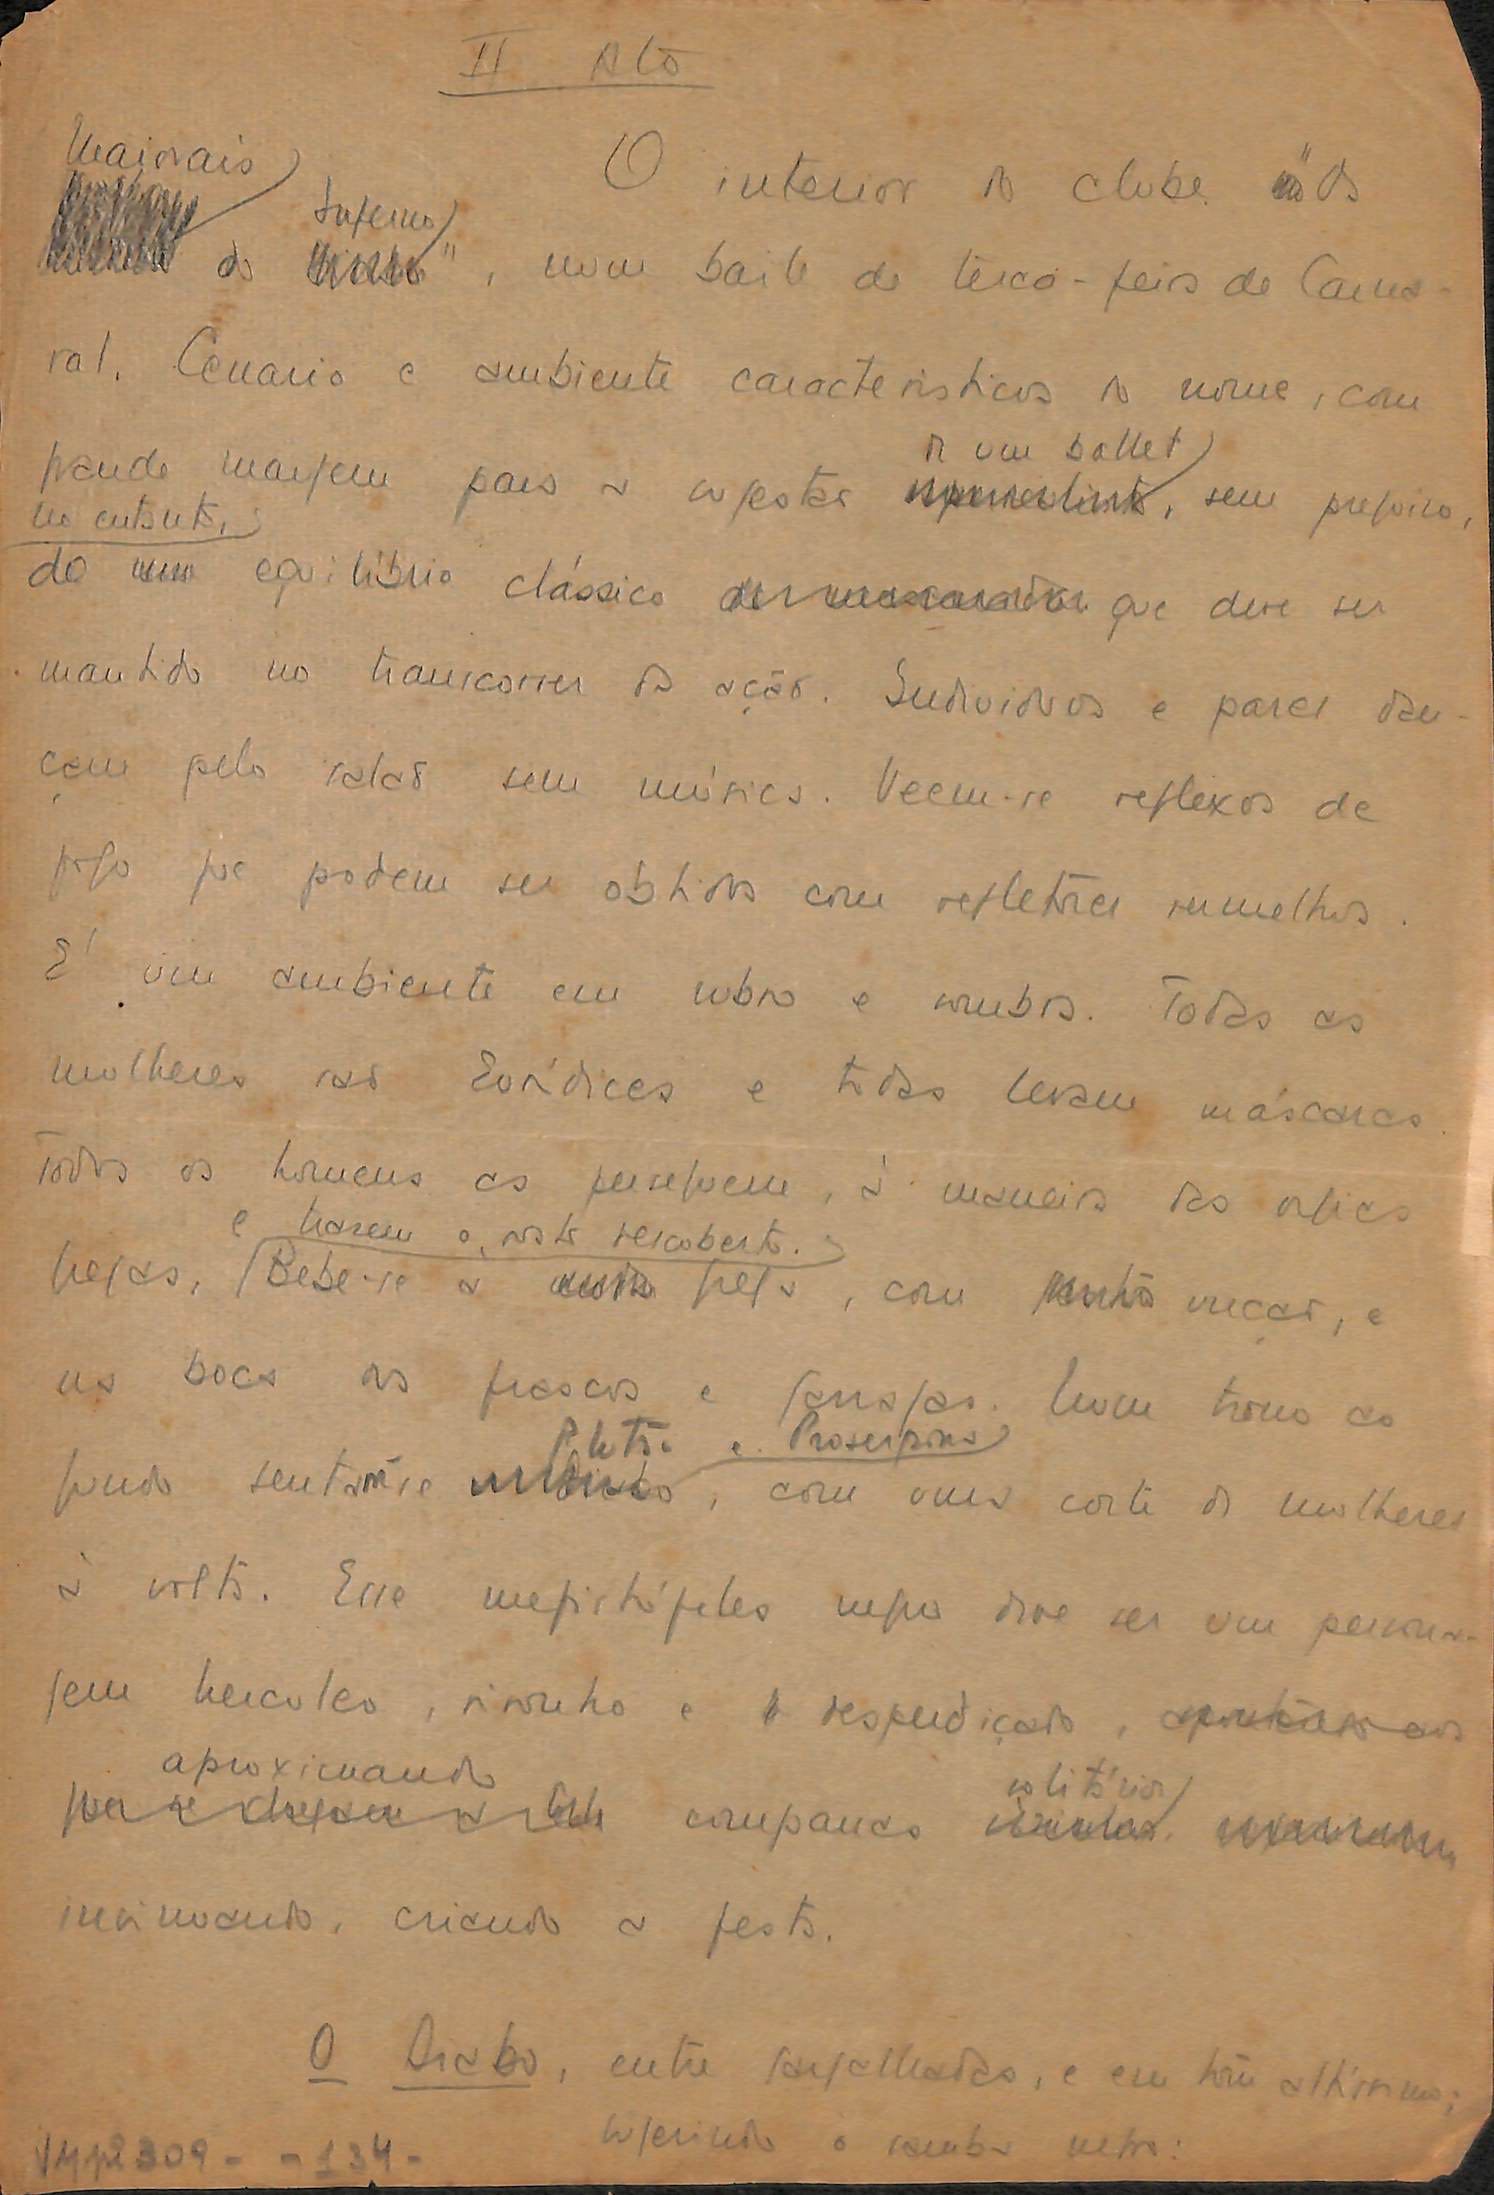 II Ato
O interior do clube "Os
Maiorais do Inferno", num baile de terça-feira de Carna-
val. Cenario e ambiente caracteristicos do nome, com
grande margem para a sugestão de um ballet, sem prejuizo,
no entanto,
do equilíbrio clássico que deve ser
mantido no transcorrer da ação. Individuos e pares dan-
çam pelo salão sem música. Veem-se reflexos de
fogo que podem ser obtidos com refletôres vermelhos.
E' um ambiente em rubro e sombra. Todas as
mulheres são Eurídices e todas levam máscaras.
Todos os homens as perseguem, à maneira das orgias
e trazem o rosto descoberto.
gregas, Bebe-se à grega, com unção, e
na boca dos frascos e garrafas. Num trono ao
Plutão e Proserpina
fundo sentam-se, com uma corte de mulheres
à volta. Esse mefistófeles negro deve ser um persona-
gem herculeo, risonho e desperdiçado,
aproximando comparsas solitários
insinuando, criando a festa.
O Diabo, entre gargalhadas, e em tom altíssimo;
sugerindo o samba negro:
VMpi2309 - - 134 -